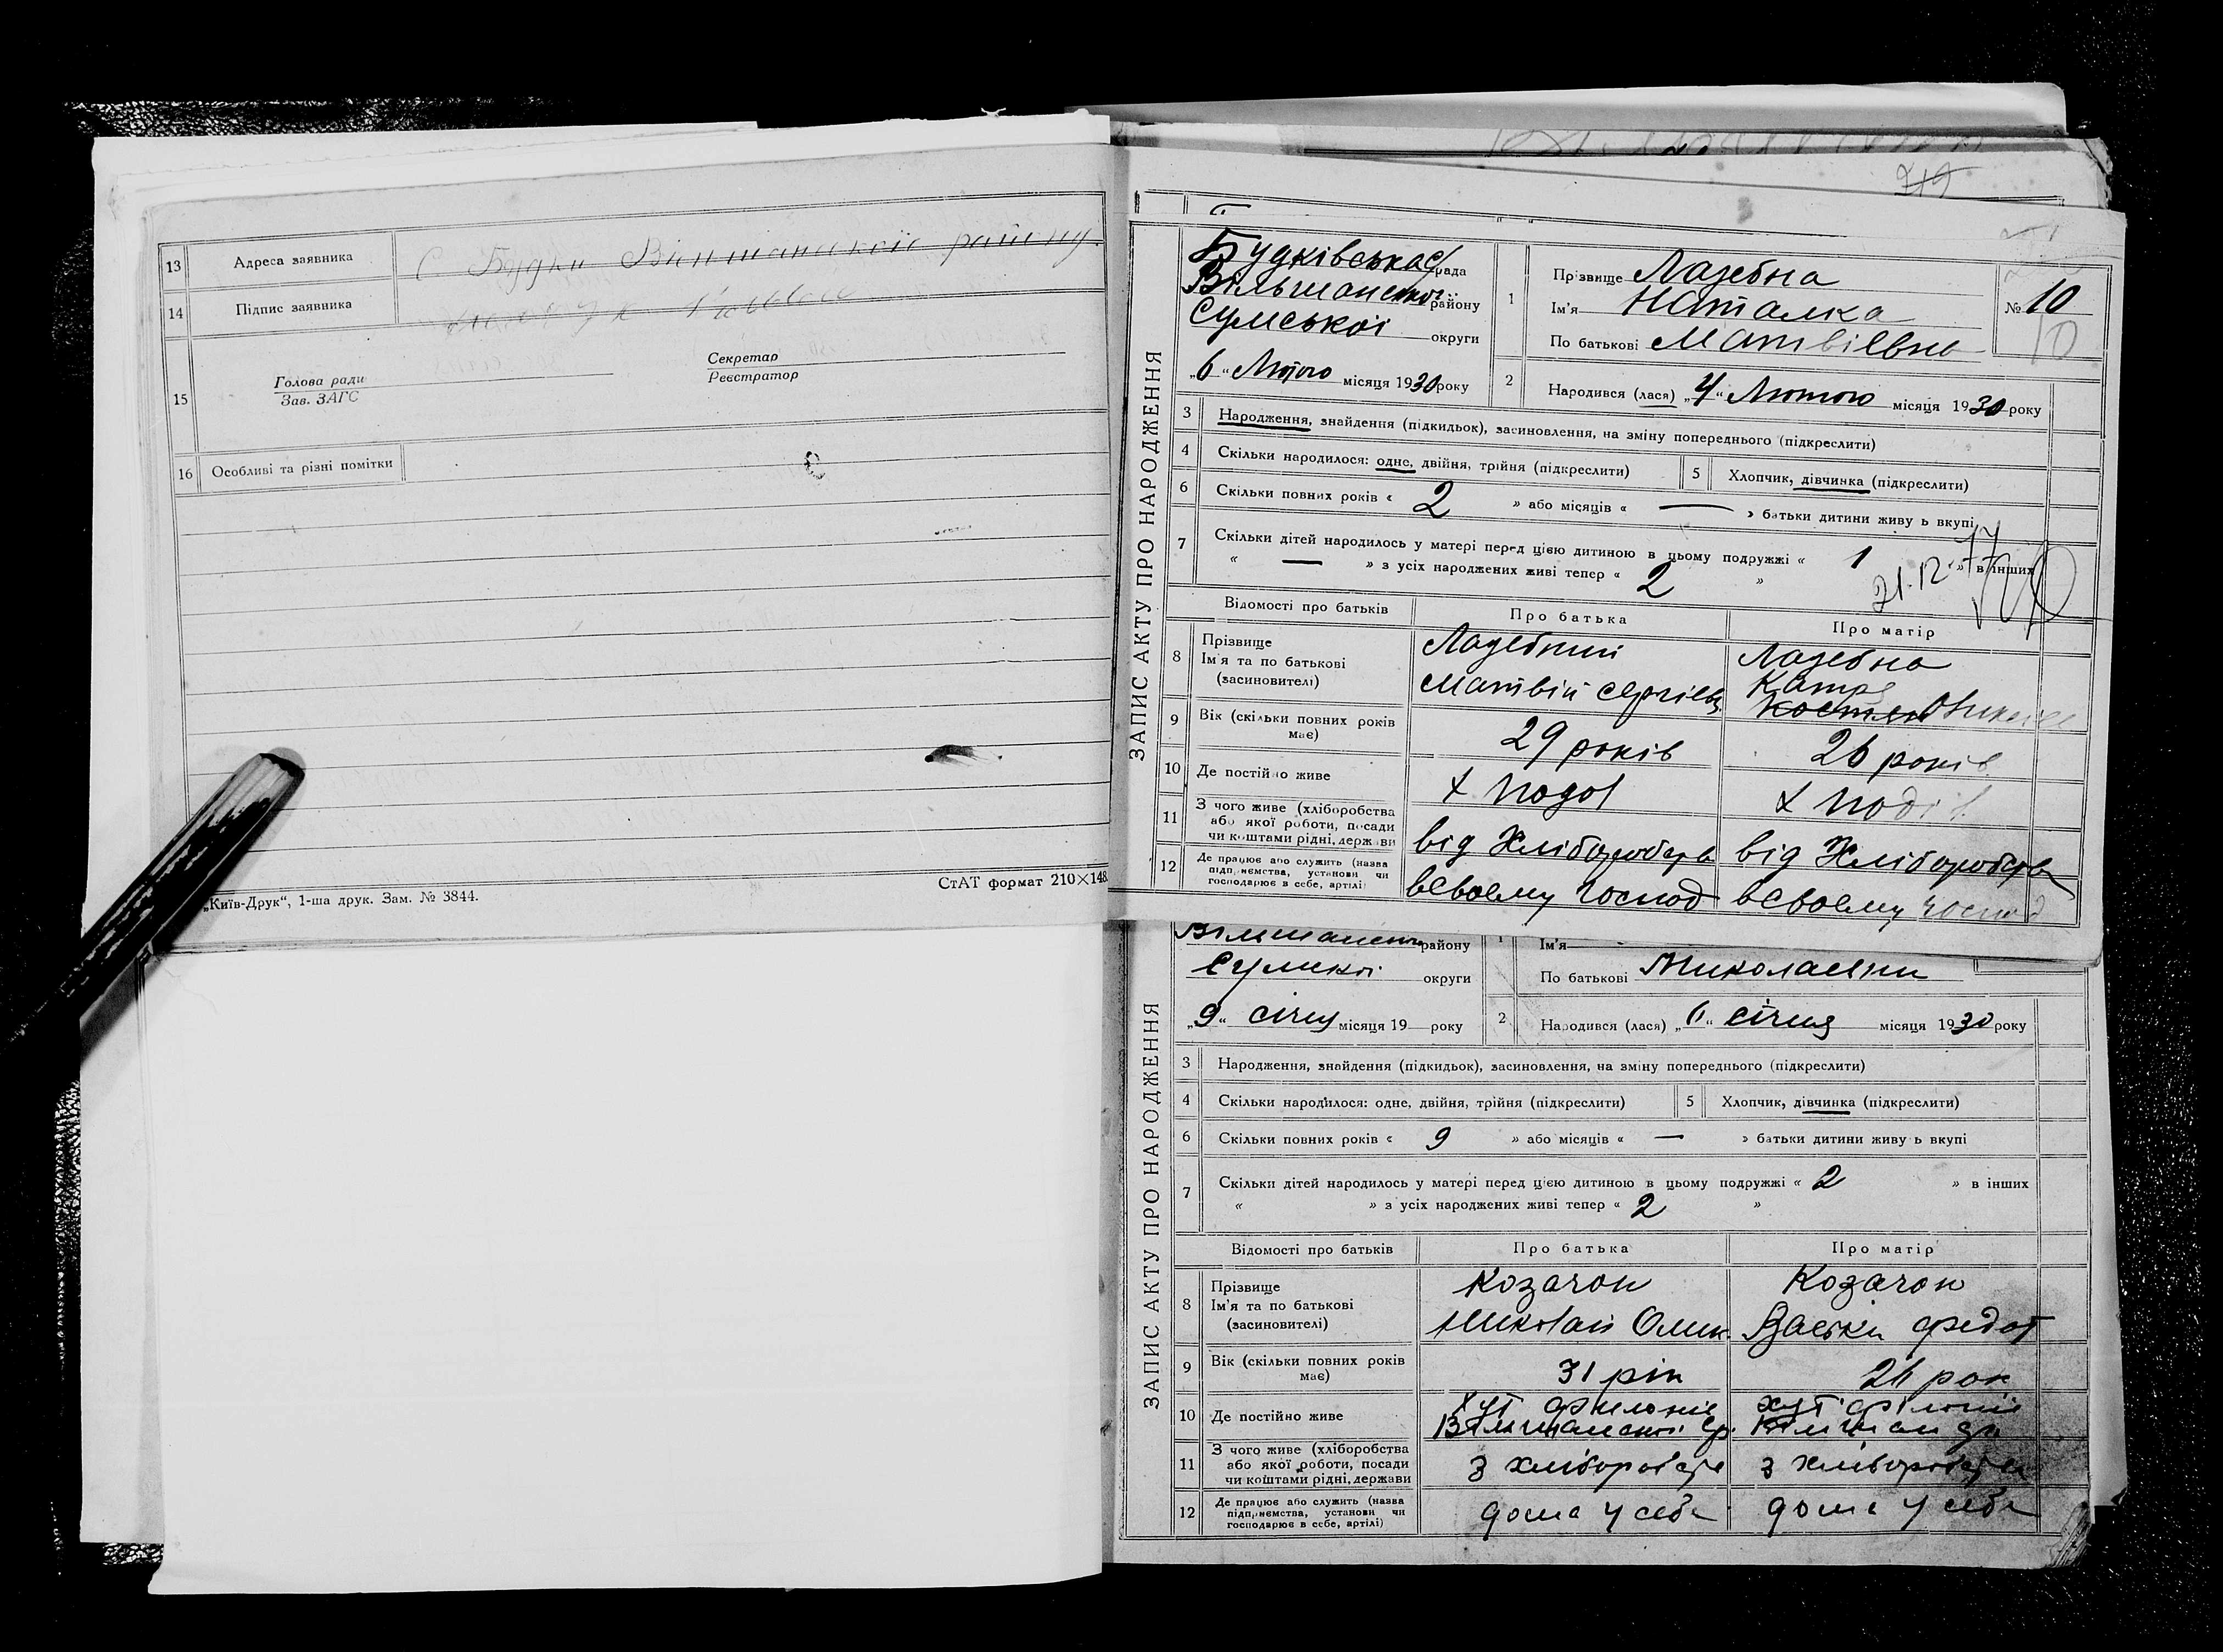 13 Адреса заявника С Будки Вільшанської району.
14 Підпис заявника
15 Голова ради
Зав. ЗАГС
Секретар
Реєстратор
16 Особливі та різні помітки
„Київ-Друк“, 1-ша друк. Зам. № 3844.
СтАТ формат 210×148
719
ЗАПИС АКТУ ПРО НАРОДЖЕННЯ
Будківська с/рада
Вільшанської району
Сумської округи
„6“ Лютого місяця 1930 року
1 Прізвище Лазебна
Ім'я Наталка
По батькові Матвіївна
№ 10
10
2 Народився (лася) „4“ Лютого місяця 1930 року
3 Народження, знайдення (підкидьок), засиновлення, на зміну попереднього (підкреслити)
4 Скільки народилося: одне, двійня, трійня (підкреслити)
5 Хлопчик, дівчинка (підкреслити)
6 Скільки повних років « 2 » або місяців « — » батьки дитини живу ь вкупі
7 Скільки дітей народилось у матері перед цією дитиною в цьому подружжі « 1 » в інших
« — » з усіх народжених живі тепер « 2 »
21.12.77
Відомості про батьків Про батька Про матір
8 Прізвище
Ім'я та по батькові
(засиновителі)
Лазебний
Матвій Сергієв
Лазебна
Катря
9 Вік (скільки повних років має) 29 років 26 років
10 Де постійно живе
11 З чого живе (хліборобства
або якої роботи, посади
чи коштами рідні, держави
від Хліборобств від Хліборобств
12 Де працює або служить (назва
підприємства, установи чи
господарює в себе, артілі)
в Своєму Господ в Своєму Господ
ЗАПИС АКТУ ПРО НАРОДЖЕННЯ
району
Сумської округи
„9“ січня місяця 19 року
1 Ім'я
По батькові Миколаєвни
2 Народився (лася) „6“ січня місяця 1930 року
3 Народження, знайдення (підкидьок), засиновлення, на зміну попереднього (підкреслити)
4 Скільки народилося: одне, двійня, трійня (підкреслити)
5 Хлопчик, дівчинка (підкреслити)
6 Скільки повних років « 9 » або місяців « — » батьки дитини живу ь вкупі
7 Скільки дітей народилось у матері перед цією дитиною в цьому подружжі « 2 » в інших
« » з усіх народжених живі тепер « 2 »
Відомості про батьків Про батька Про матір
8 Прізвище
Ім'я та по батькові
(засиновителі)
Козачок
Миколай Олик.
Козачок
Васьки Федот
9 Вік (скільки повних років має) 31 рік 26 рок
10 Де постійно живе
11 З чого живе (хліборобства
або якої роботи, посади
чи коштами рідні, держави
з хліборобств з хліборобств
12 Де працює або служить (назва
підприємства, установи чи
господарює в себе, артілі)
дома у себе дома у себе